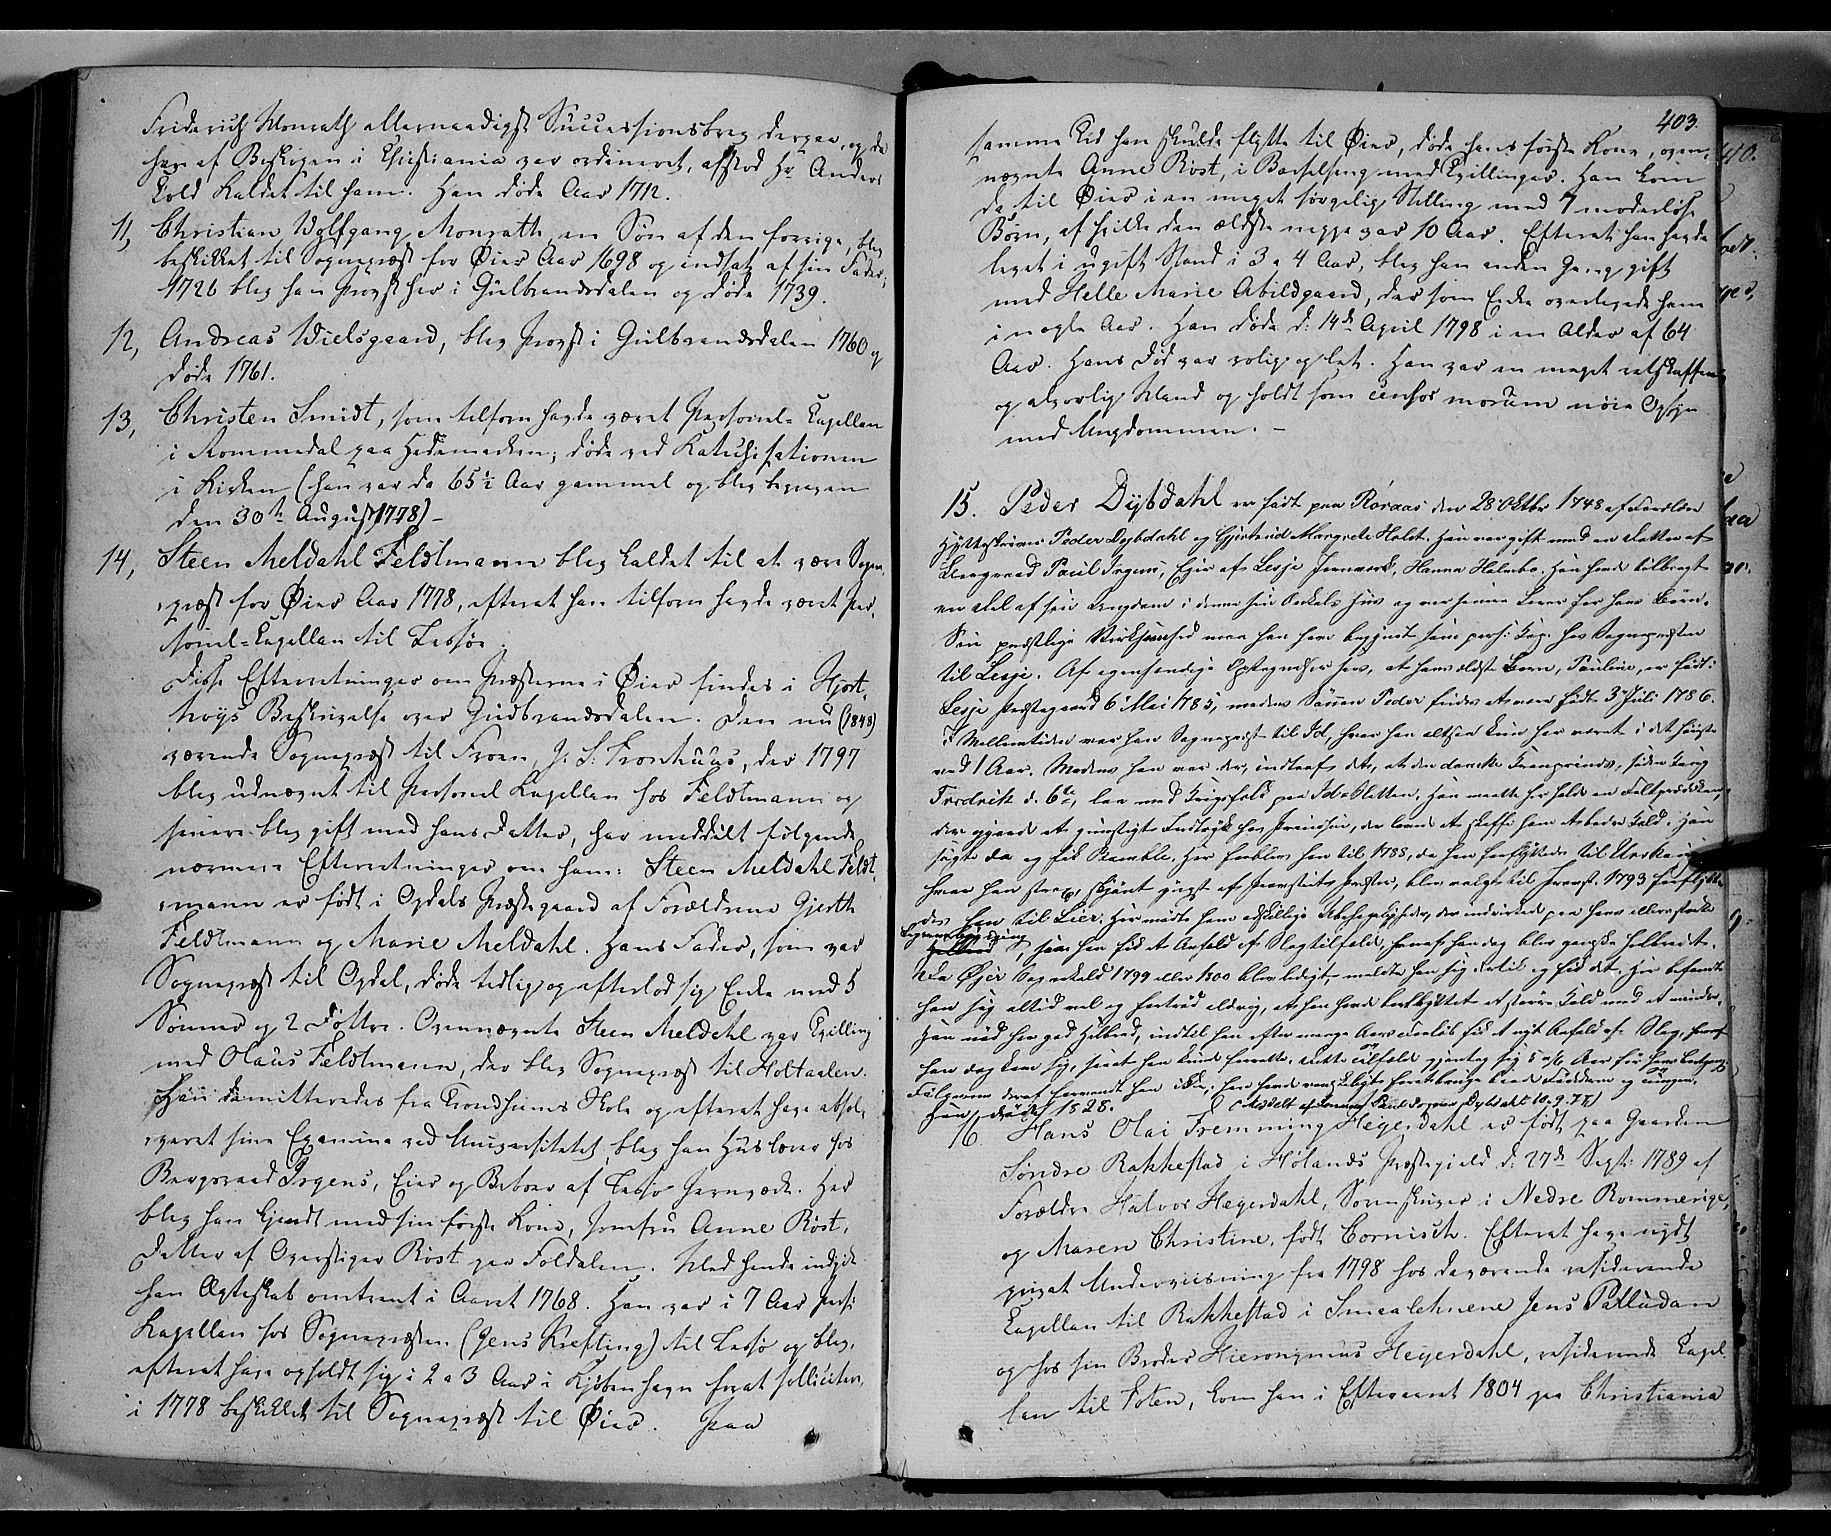 Friderich Monrath allernaadigst Successionsbrev derpaa, og da
han af Biskopen i Christiania var ordineret, afstod Hr Anders
Kold Kaldet til ham. Han døde Aar 1712.
11, Christian Wolfgang Monrath, en Søn af den forrige, blev
beskikket til Sognepræst for Øier Aar 1698 og indsat af sin Fader;
1726 blev han Provst her i Gulbrandsdalen og døde 1739.
12, Andreas Wielsgaard, blev Provst i Gulbrandsdalen 1760 og
døde 1761.
13, Christen Smidt, som tilforn havde været Personel-Capellan
i Rommedal paa Hedemarken; døde ved Katechisationen
i Kirken (han var da 65½ Aar gammel og blev begraven
den 30te August 1778) –
14, Steen Meldahl Feldtmann blev kaldet til at være Sogne-
præst for Øier Aar 1778, efterat han tilforn havde været Per-
sonel-Capellan til Lessøe.
Disse Efterretninger om Præsterne i Øier findes i Hjort-
høys Beskrivelse over Gudbrandsdalen. Den nu (1848)
værende Sognepræst til Froen, J. S. Tronhuus, der 1797
blev udnævnt til Personel Kapellan hos Feldtmann og
senere blev gift med hans Datter, har meddelt følgende
nærmere Efterretninger om ham: Steen Meldahl Feldt-
mann er født i Opdals Præstegaard af Forældrene Gjerth
Feldtmann og Marie Meldahl. Hans Fader, som var
Sognepræst til Opdal, døde tidlig og efterlod sig Enke med 5
Sønner og 2 Døttre. Ovennævnte Steen Meldahl var Tvilling
med Olaus Feldtmann, der blev Sognepræst til Holtaalen.
Han dimitteredes fra Trondhiems Skole og efterat have absol-
veret sine Examina ved Universitetet, blev han Huuslærer hos
Bergraad Irgens, Eier og Beboer af Lessø Jernværk. Her
blev han kjendt med sin første Kone, Jomfru Anne Røst,
Datter af Overstiger Røst paa Foldalen. Med hende indgik
han Ægteskab omtrent i Aaret 1768. Han var i 7 Aar Pers:
Kapellan hos Sognepræsten (Jens Krefting) til Lessø og blev,
efterat have opholdt sig i 2 a 3 Aar i Kjøbenhavn forat sollicitere,
i 1778 beskikket til Sognepræst til Øier. Paa
403.
samme Tid han skulde flytte til Øier, døde hans første Kone, oven-
nævnte Anne Røst, i Barselseng med Tvillinger. Han kom
da til Øier i en meget sørgelig Stilling med 7 moderløse
Børn, af hvilke den ældste neppe var 10 Aar. Efterat han havde
levet i ugift Stand i 3 a 4 Aar, blev han anden Gang gift
med Helle Marie Abildgaard, der som Enke overlevede ham
i nogle Aar. Han døde d: 14de April 1798 i en Alder af 64
Aar. Hans Død var rolig og let. Han var en meget retskaffen
og alvorlig Mand og holdt som censor morum nøie Opsyn
med Ungdommen. –
15. Peder Dybdahl er født paa Røraas den 28 Oktbr 1748 af Forældre
Hytteskriver Peder Dybdahl og Gjertrud Margrete Holst. Han var gift med en Datter af
Bergraad Paul Irgens, Eier af Lesje Jernværk, Hanna Holmboe. Han havde tilbragt
en Del af sin Ungdom i denne sin Onkels Hus og var senere Lærer for hans Børn.
Sin præstlige Virksomhed maa han have begyndt som pers: Kap. hos Sognepræsten
til Lesje. Af egenhændige Optegnelser sees, at hans ældste Barn, Pauline, er født i
Lesje Præstegaard 6 Mai 1785, medens Sønnen Peder findes at være født 3 Juli 1786.
I Mellemtiden var han Sognepræst til Id, hvor han altsaa kun har været i det høieste
ved 1 Aar. Medens han var der, indtraf det, at den danske Kronprinds, siden Kong
Fredrik d. 6te, laa med Krigsfolk paa Id-Sletten. Han maatte her holde en Feltprædiken,
der gjorde et gunstigt Indtryk hos Prindsen, der lovede at skaffe ham et bedre Kald. Han
søgte da og fik Bamble. Her forblev han til 1788, da han forflyttedes til Urskoug
hvor han strax, skjønt yngst af Provstiets Præster, blev valgt til Provst. 1793 forflytte-
des han til Lier. Her mødte ham adskillige Ubehageligheder, der indvirkede paa hans
, saa han fik et Anfald af Slagtilfælde, hvoraf han dog blev ganske helbredet.
Da Øyer Sognekald 1799 eller 1800 blev ledigt, meldte han sig dertil og fik det. Her befandt
han sig altid vel og fortrød aldrig, at han havde ombyttet et større Kald med et mindre.
Han nød her god Helbred, indtil han efter mange Aars Forløb fik et nyt Anfald af Slag, hvoraf
han dog kom sig, saa at han kunde forrette, dette Tilfælde gjentog sig 5 a 6 Aar før hans Bortgang.
Følgerne deraf forvandt han ikke;
Han døde 1828. (Meddelt af Sønnen Paul Irgens Dybdahl 10.9.77)
16. Hans Olai Fremming Heyerdahl er født paa Gaarden
Søndre Rakkestad i Hølands Præstegjeld d: 27de Sept: 1789 af
Forældre Halvor Heyerdahl, Sorenskriver i Nedre Rommerige,
og Maren Christine, født Cornisch. Efterat have nydt
privat Underviisning fra 1798 hos daværende residerende
Capellan til Rakkestad i Smaalehnene Jens Palludan
og hos sin Broder Hieronymus Heyerdahl, residerende Capel-
lan til Toten, kom han i Efteraaret 1804 paa Christiania